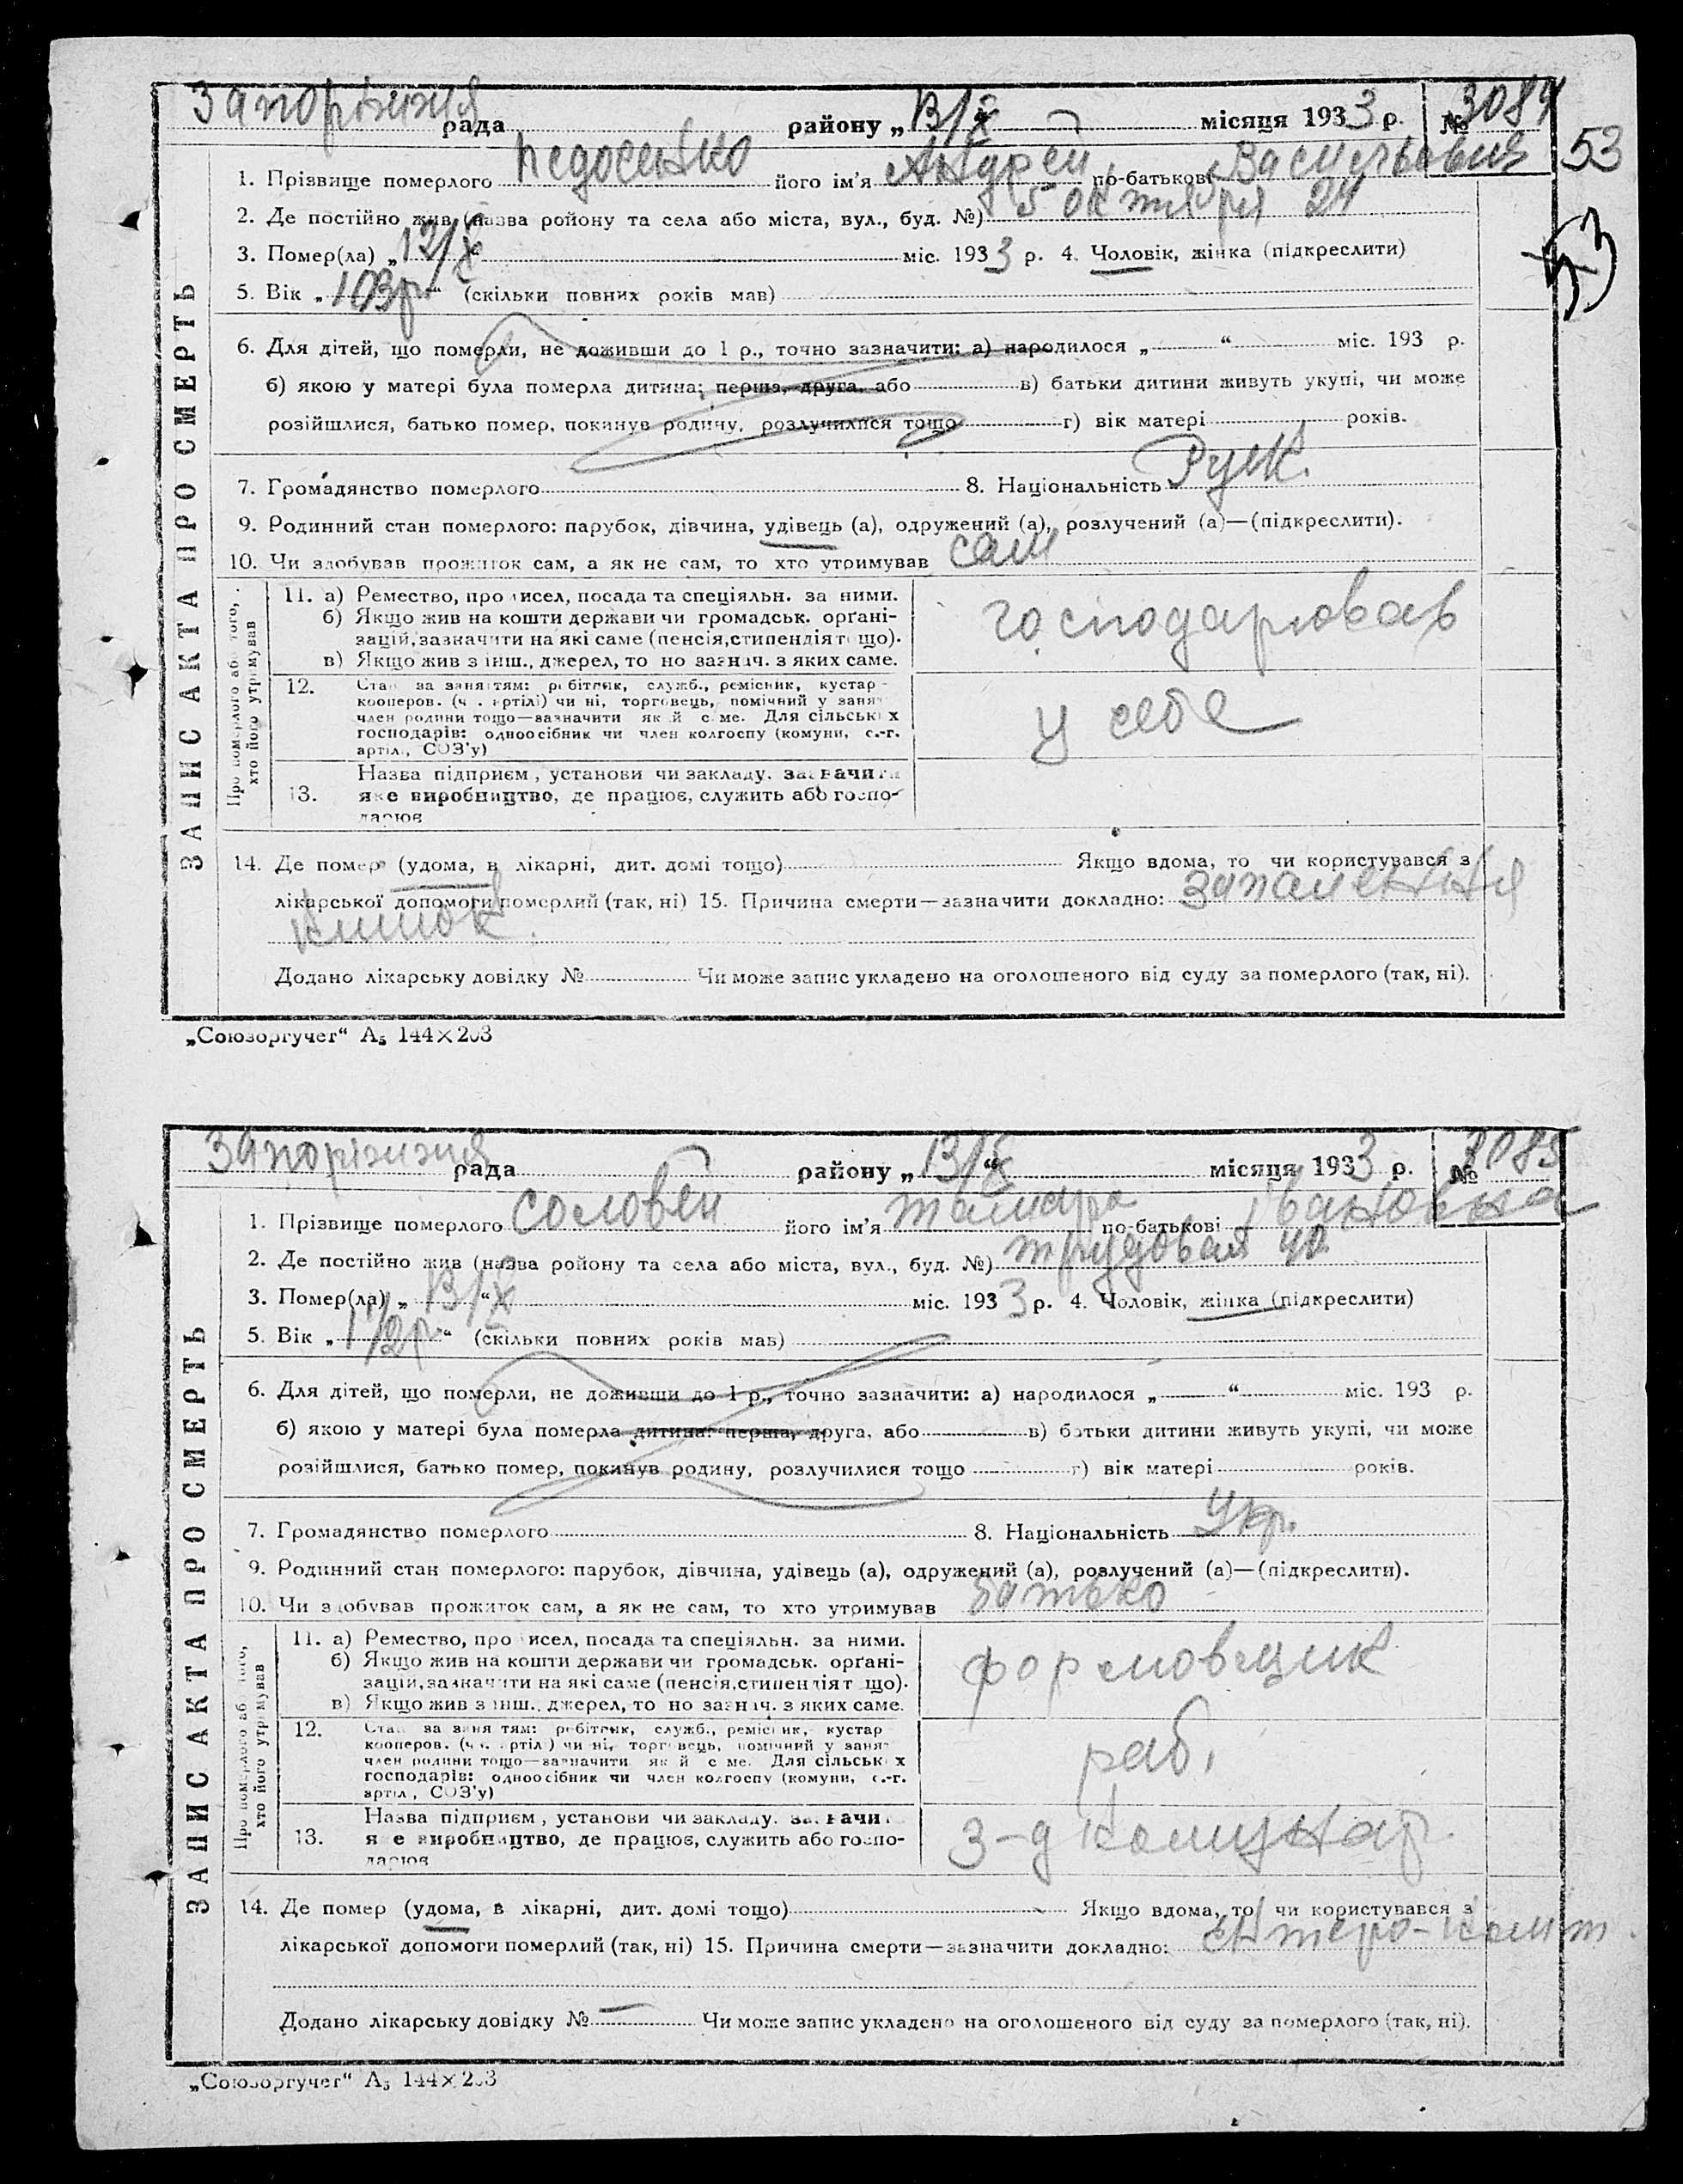 Запоріжжя рада району „13/X“ місяця 1933 р. № 3084
53
1. Прізвище померлого Недосенко його ім'я Андрей по-батькові Васильович
2. Де постійно жив (назва ройону та села або міста, вул., буд. №) 5 октября 24
53
3. Помер(ла) „12/X“ міс. 1933 р. 4. Чоловік, жінка (підкреслити)
5. Вік „103р“ (скільки повних років мав)
6. Для дітей, що померли, не доживши до 1 р., точно зазначити: а) народилося „ “ міс. 193 р.
б) якою у матері була померла дитина; перша, друга, або в) батьки дитини живуть укупі, чи може
розійшлися, батько помер, покинув родину, розлучилися тощо г) вік матері років.
7. Громадянство померлого 8. Національність
9. Родинний стан померлого: парубок, дівчина, удівець (а), одружений (а), розлучений (а)—(підкреслити).
10. Чи здобував прожиток сам, а як не сам, то хто утримував сам
ЗАПИС АКТА ПРО СМЕРТЬ
Про померлого або того, хто його утримував
11. а) Ремество, про исел, посада та спеціяльн. за ними.
б) Якщо жив на кошти держави чи громадськ. орґані-
зацій, зазначити на які саме (пенсія, стипендія т що).
в) Якщо жив з інш., джерел, то но зазнач. з яких саме.
господарював
12. Стан за заняттям: робітник, служб., ремісник, кустар-
кооперов. (ч . артілі) чи ні, торговець, помічний у занят
член родини тощо—зазначити як й с ме. Для сільськ х
господарів: одноосібник чи член колгоспу (комуни, с.-г.
артіл., СОЗ'у)
у себе
13. Назва підприєм , установи чи закладу. зазначити
яке виробництво, де працює, служить або госпо-
дарює
14. Де помер (удома, в лікарні, дит. домі тощо) Якщо вдома, то чи користувався з
лікарської допомоги померлий (так, ні) 15. Причина смерти—зазначити докладно: запалення
кишок.
Додано лікарську довідку № Чи може запис укладено на оголошеного від суду за померлого (так, ні).
„Союзоргучет“ А₅ 144×203
Запоріжжя рада району „13/X“ місяця 1933 р. № 3085
1. Прізвище померлого Соловей його ім'я Тамара по-батькові Івановна
2. Де постійно жив (назва ройону та села або міста, вул., буд. №) Трудовая 40
3. Помер(ла) „13/X“ міс. 1933 р. 4. Чоловік, жінка (підкреслити)
5. Вік „1 1/2 р“ (скільки повних років мав)
6. Для дітей, що померли, не доживши до 1 р., точно зазначити: а) народилося „ “ міс. 193 р.
б) якою у матері була померла дитина: перша, друга, або в) батьки дитини живуть укупі, чи може
розійшлися, батько помер, покинув родину, розлучилися тощо г) вік матері років.
7. Громадянство померлого 8. Національність Укр.
9. Родинний стан померлого: парубок, дівчина, удівець (а), одружений (а), розлучений (а)—(підкреслити).
10. Чи здобував прожиток сам, а як не сам, то хто утримував батько
ЗАПИС АКТА ПРО СМЕРТЬ
Про померлого або того, хто його утримував
11. а) Ремество, про исел, посада та спеціяльн. за ними.
б) Якщо жив на кошти держави чи громадськ. орґані-
зацій, зазначити на які саме (пенсія, стипендія т що).
в) Якщо жив з інш., джерел, то но зазнач. з яких саме.
формовщик
12. Стан за заняттям: робітник, служб., ремісник, кустар
кооперов. (ч . артіл ) чи ні, торговець, помічний у занят
член родини тощо—зазначити як й с ме. Для сільськ х
господарів: одноосібник чи член колгоспу (комуни, с.-г.
артіл , СОЗ'у)
раб.
13. Назва підприєм , установи чи закладу. зазначи
яке виробництво, де працює, служить або госпо-
дарює
З-д Комунар.
14. Де помер (удома, в лікарні, дит. домі тощо) Якщо вдома, то чи користувався з
лікарської допомоги померлий (так, ні) 15. Причина смерти—зазначити докладно: Ентеро-колит.
Додано лікарську довідку № — Чи може запис укладено на оголошеного від суду за померлого (так, ні).
„Союзоргучет“ А₅ 144×203